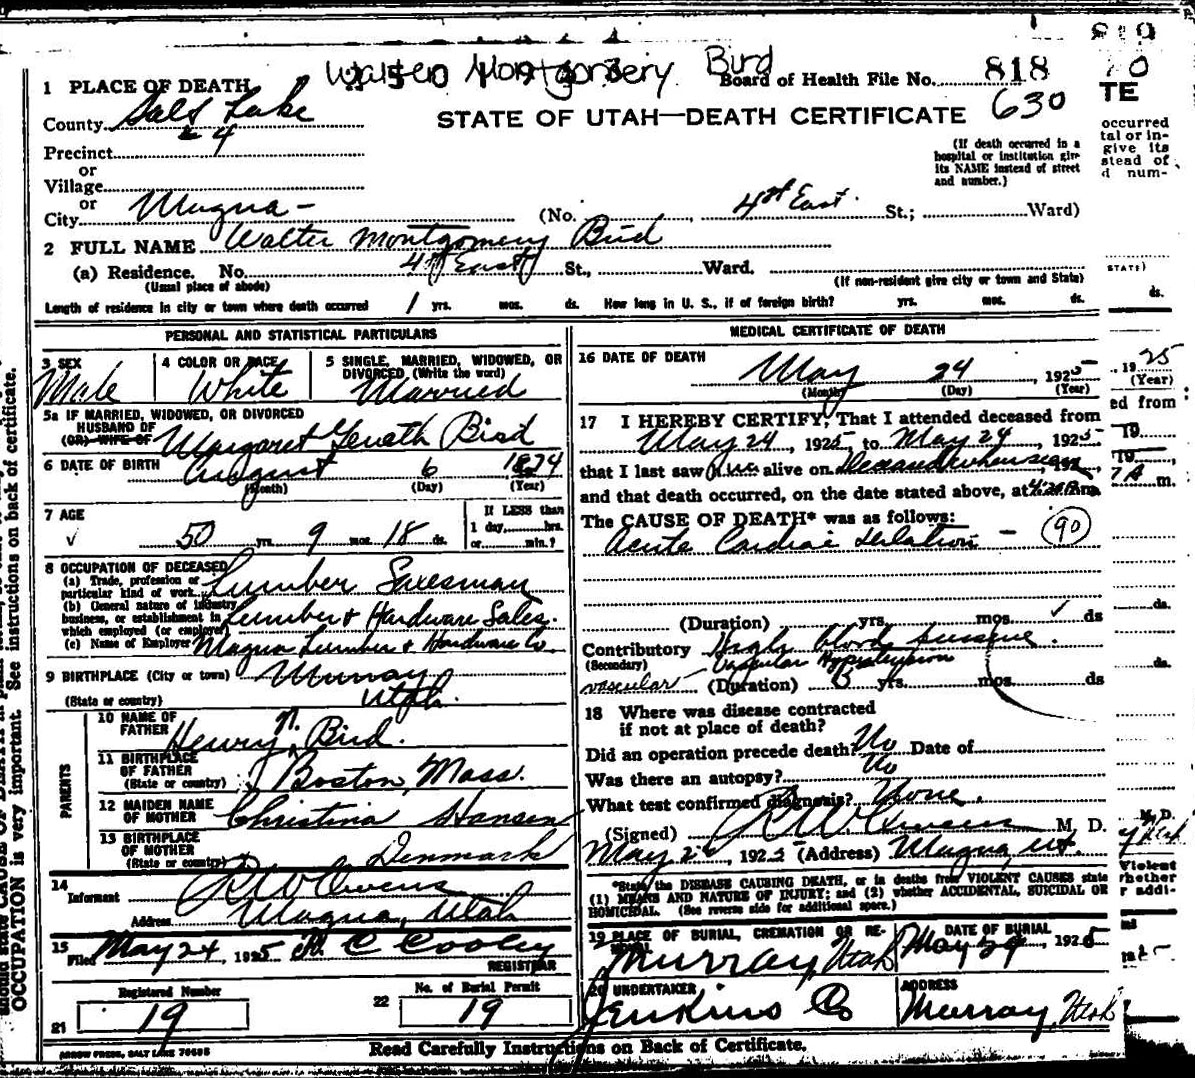 819
Walter Montgomery Bird
Board of Health File No. 818
1 PLACE OF DEATH
STATE OF UTAH—DEATH CERTIFICATE 630
County Salt Lake
Precinct 4
or
Village
or
City Magna - (No. , 4st East. St.; Ward)
(If death occurred in a
hospital or institution give
its NAME instead of street
and number.)
2 FULL NAME Walter Montgomery Bird
(a) Residence. No. 4th East St., Ward.
(Usual place of abode) (If non-resident give city or town and State)
Length of residence in city or town where death occurred 1 yrs. mos. ds. How long in U. S., if of foreign birth? yrs. mos. ds.
PERSONAL AND STATISTICAL PARTICULARS
3 SEX Male
4 COLOR OR RACE White
5 SINGLE, MARRIED, WIDOWED, OR
DIVORCED (Write the word)
Married
5a IF MARRIED, WIDOWED, OR DIVORCED
HUSBAND OF
(OR) WIFE OF Margaret Bird
6 DATE OF BIRTH August 6 1874
(Month) (Day) (Year)
7 AGE
50 yrs. 9 mos. 18 ds.
If LESS than
1 day, hrs.
or min.?
8 OCCUPATION OF DECEASED
(a) Trade, profession or
particular kind of work Lumber Salesman
(b) General nature of industry
business, or establishment in
which employed (or employer) Lumber + Hardware Sales.
(c) Name of Employer Magna Lumber + Hardware Co.
9 BIRTHPLACE (City or town) Murray
(State or country) Utah.
PARENTS
10 NAME OF
FATHER Henry M. Bird.
11 BIRTHPLACE
OF FATHER
(State or country) Boston, Mass.
12 MAIDEN NAME
OF MOTHER Christina Hansen
13 BIRTHPLACE
OF MOTHER
(State or country) Denmark
14
Informant R W Owens
Address Magna, Utah
15
Filed May 24, 1925 H C Cooley
REGISTRAR
Registered Number
21 19
No. of Burial Permit
22 19
MEDICAL CERTIFICATE OF DEATH
16 DATE OF DEATH
May 24, 1925
(Month) (Day) (Year)
17 I HEREBY CERTIFY, That I attended deceased from
May 24, 1925, to May 24, 1925
that I last saw him alive on Deceased when seen, 192
and that death occurred, on the date stated above, at m
The CAUSE OF DEATH* was as follows:
Acute Cardiac dilation - 90
(Duration) yrs. mos. ds
Contributory High blood pressure.
(Secondary) Vascular Hypertension
vascular (Duration) 3 yrs. mos. ds
18 Where was disease contracted
if not at place of death?
Did an operation precede death? No Date of
Was there an autopsy? No
What test confirmed diagnosis? None.
(Signed) R W Owens M. D.
May 26, 1925 (Address) Magna, Ut.
*State the DISEASE CAUSING DEATH, or in deaths from VIOLENT CAUSES state
(1) MEANS AND NATURE OF INJURY; and (2) whether ACCIDENTAL, SUICIDAL OR
HOMICIDAL. (See reverse side for additional space.)
19 PLACE OF BURIAL, CREMATION OR REMOVAL
Murray, Utah
DATE OF BURIAL
May 29, 1925
20 UNDERTAKER
Jenkins Co
ADDRESS
Murray, Utah
ARROW PRESS, SALT LAKE
Read Carefully Instructions on Back of Certificate.
OCCUPATION is very important. See instructions on back of certificate.